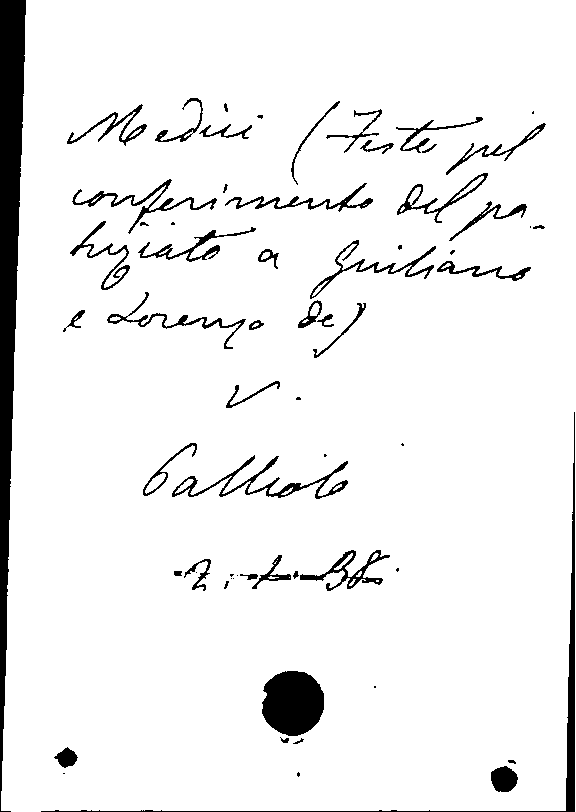 Medici (Feste pel
conferimento del pa-
triziato a Giuliano
e Lorenzo de)
V.
Palliolo